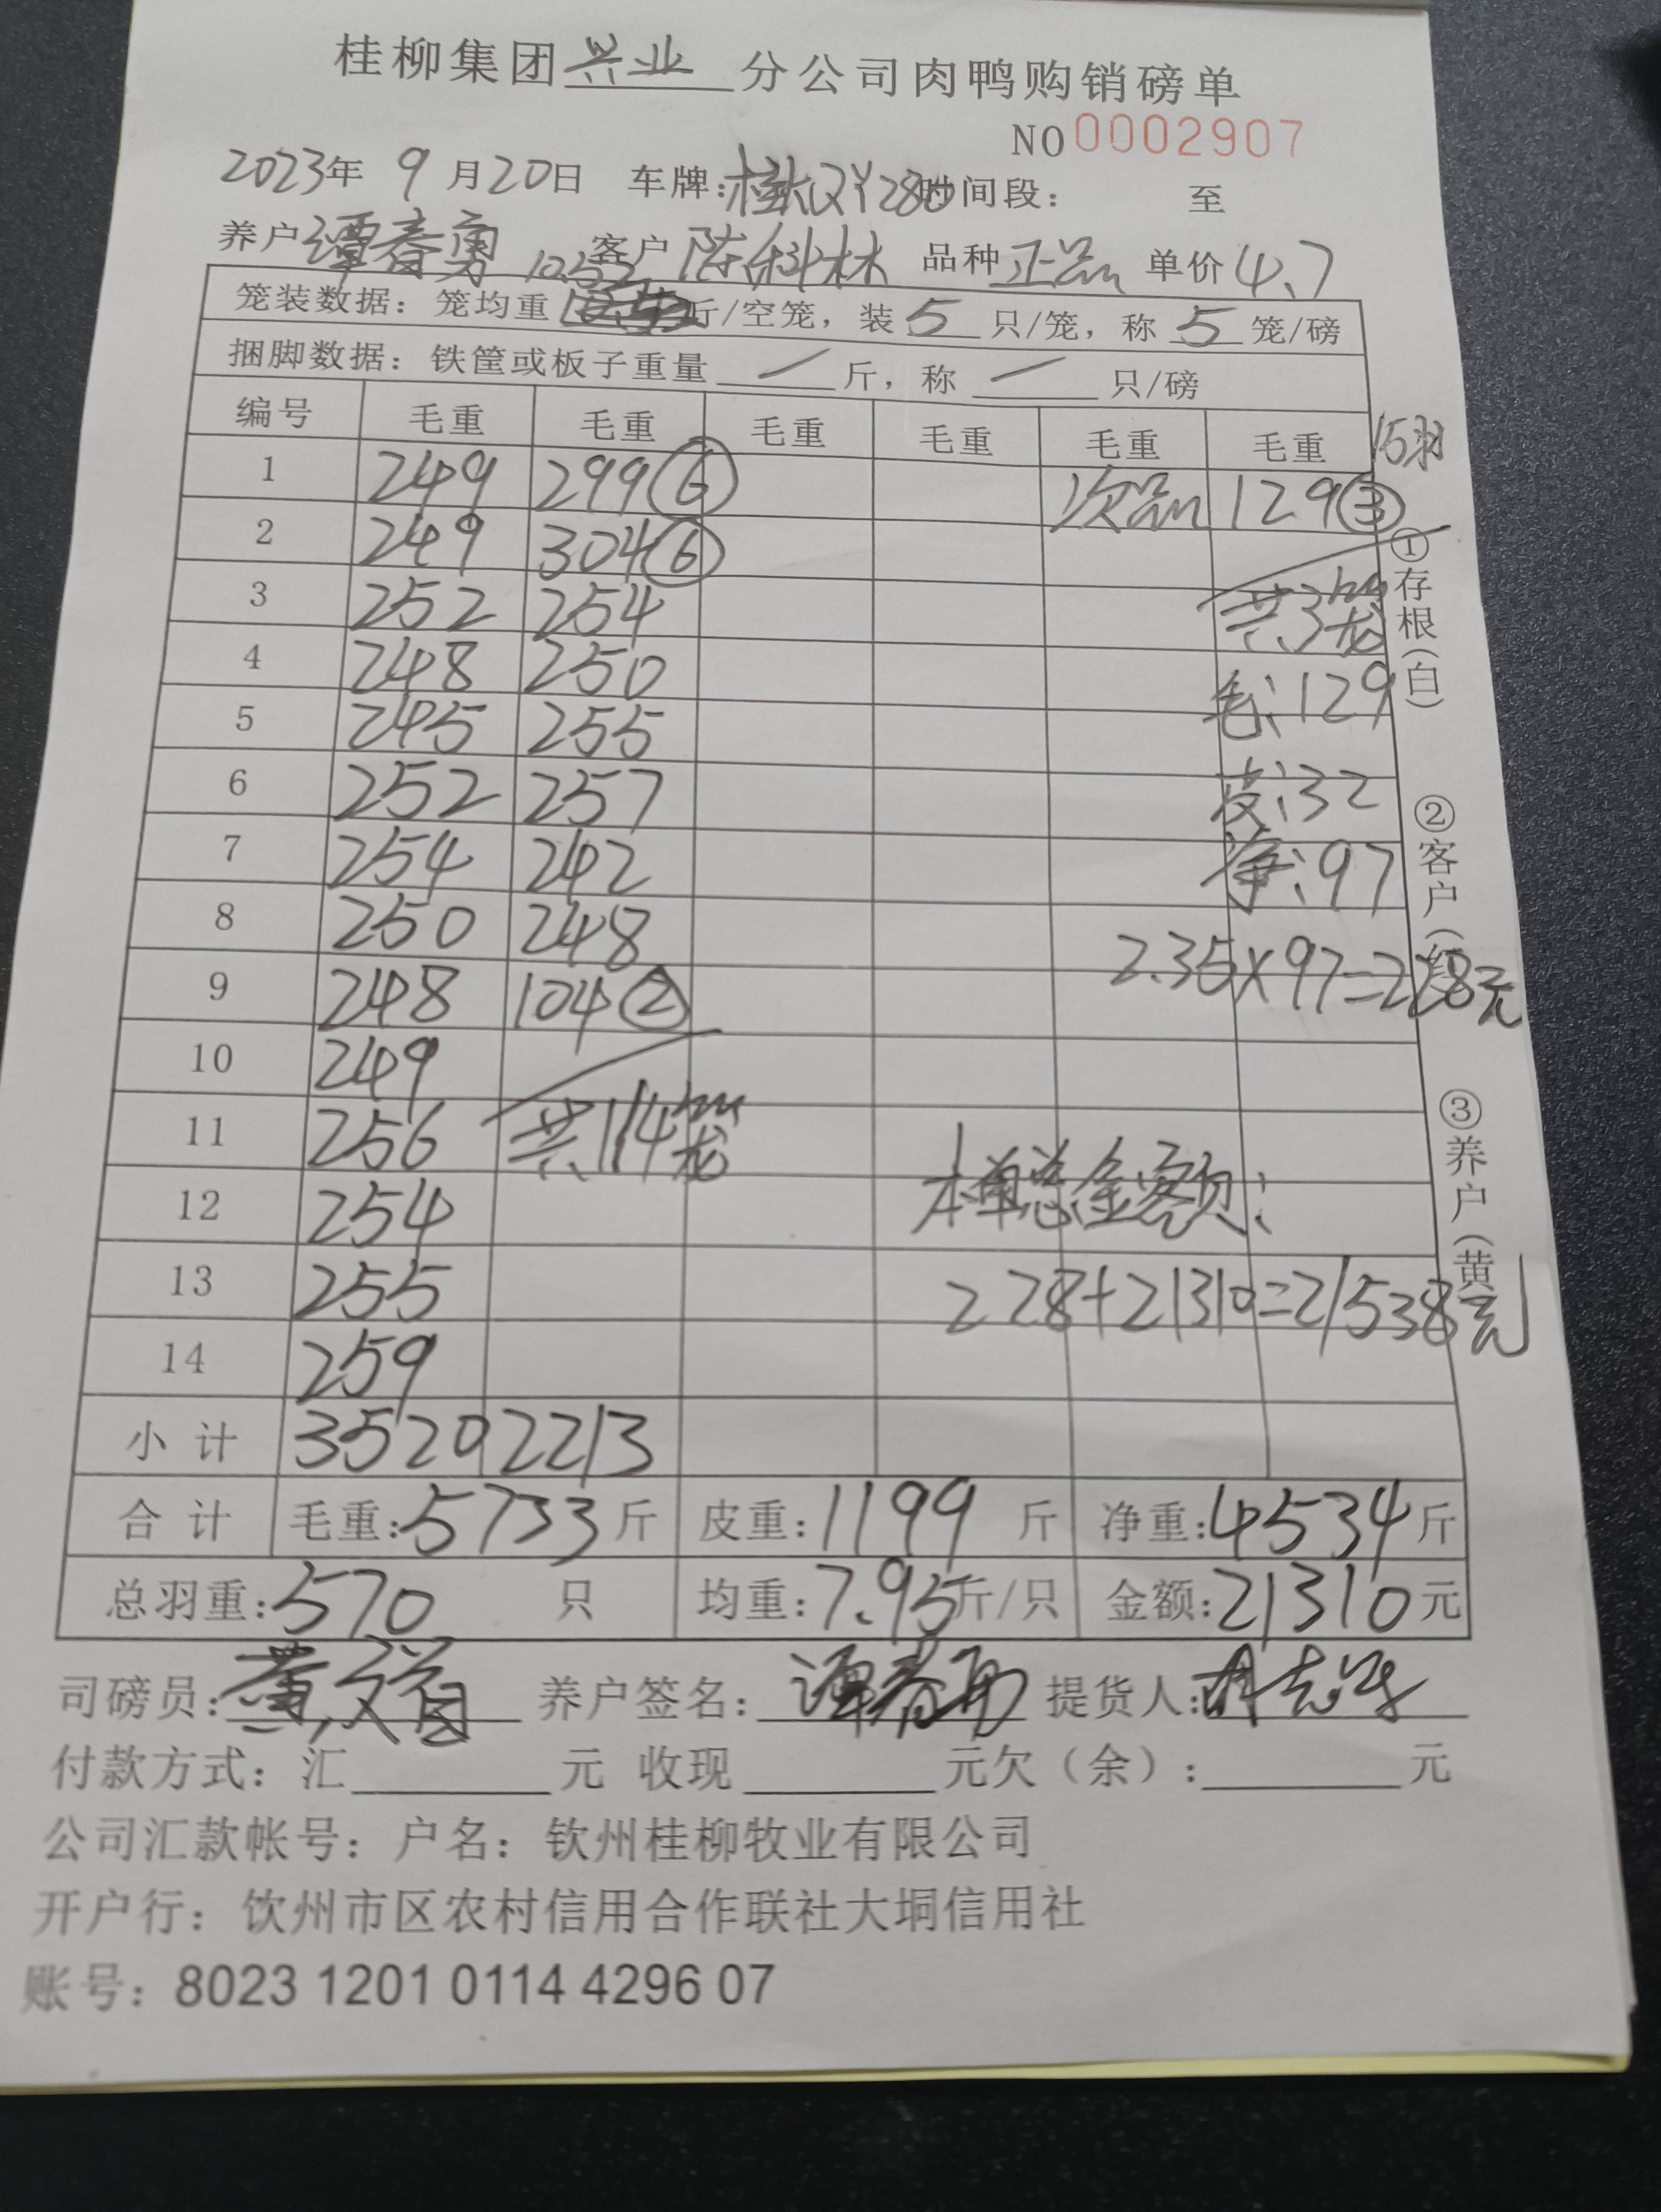 桂柳集团兴业分公司肉鸭购销磅单
NO 0002907
2023年 9月20日 车牌:桂 280 时间段: 至
养户谭春勇 客户陈科林 品种正品 单价4.7
10.52
笼装数据:笼均重 斤/空笼,装5只/笼,称5笼/磅
捆脚数据:铁筐或板子重量 / 斤,称 / 只/磅
编号 毛重 毛重 毛重 毛重 毛重 毛重 15羽
1 249 299⑥ 次品 129③
2 249 304⑥
3 252 254 共3笼
4 248 250 毛:129
5 245 255
6 252 257 皮:32
7 254 242 净:97
8 250 248 2.35×97=228元
9 248 104②
10 249
11 256 共114笼 本单总金额:
12 254
13 255 228+21310=21538元
14 259
小计 3520 2213
合计 毛重:5733斤 皮重:1199斤 净重:4534斤
总羽重:570只 均重:7.95斤/只 金额:21310元
司磅员: 养户签名:谭春勇 提货人:
付款方式:汇 元 收现 元欠(余): 元
公司汇款帐号:户名:钦州桂柳牧业有限公司
开户行:钦州市区农村信用合作联社大垌信用社
账号:8023 1201 0114 4296 07
①存根(白) ②客户( ③养户(黄